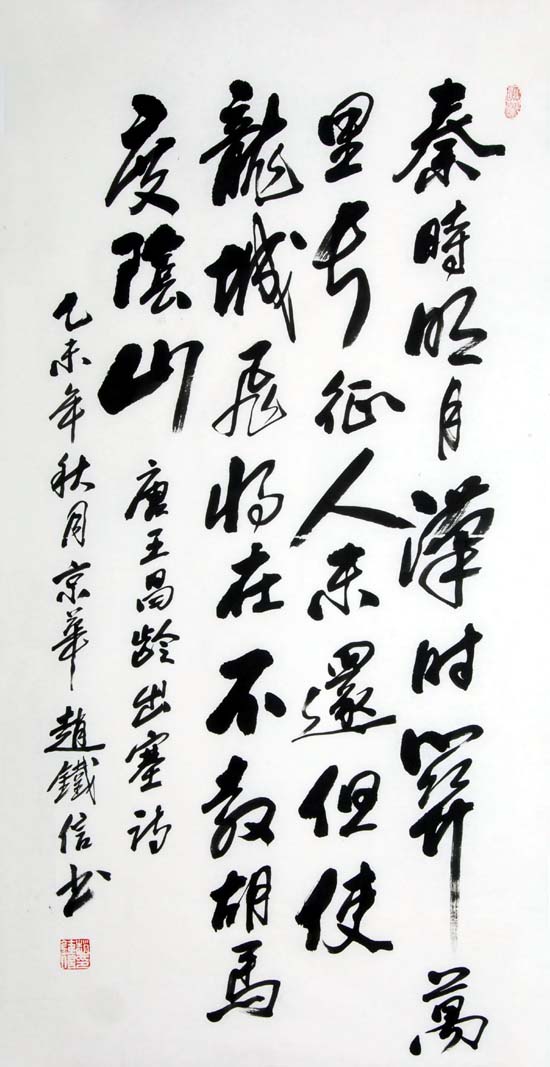 秦時明月漢時關萬
里長征人未還但使
龍城飛將在不教胡馬
度陰山
唐王昌齡出塞詩
乙未年秋月京華趙鐵信书